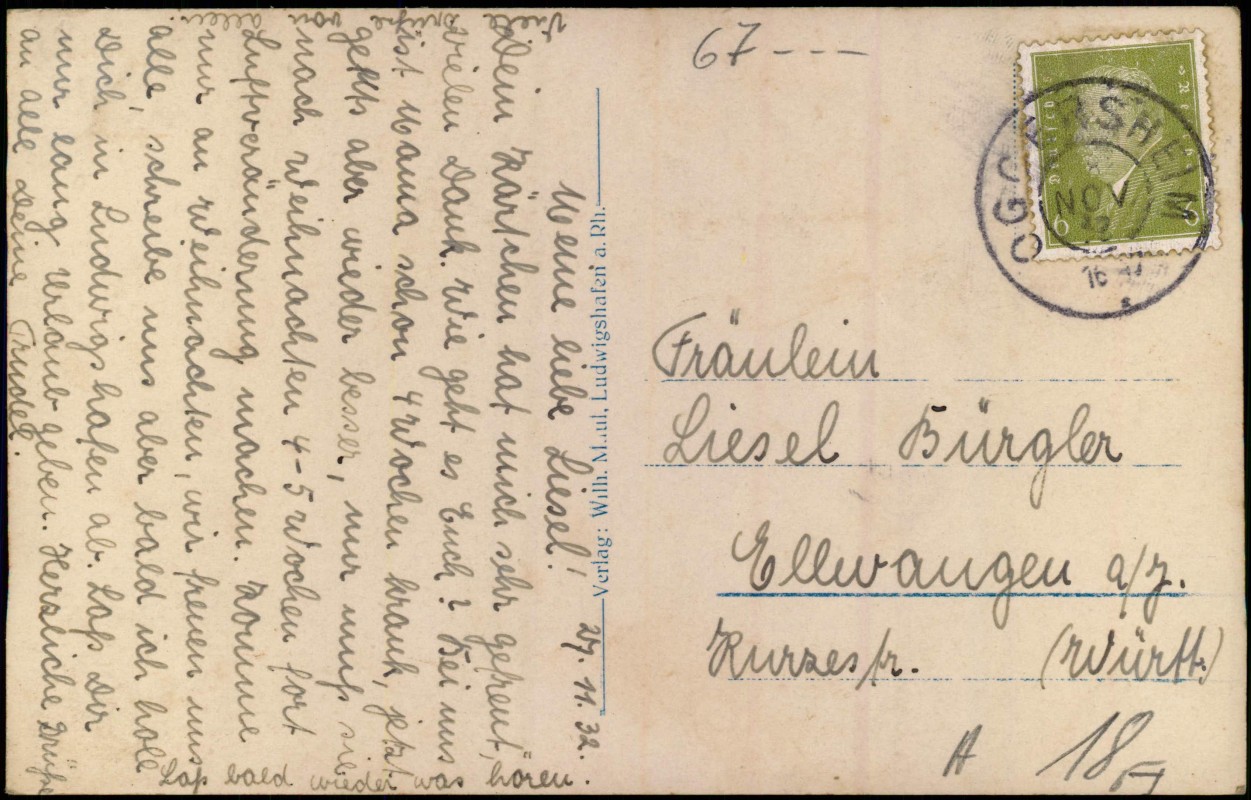 67 ---
Deutsches Reich
6 6
OGGERSHEIM
NOV
16-17
s
Fräulein
Liesel Bürgler
Ellwangen a/J.
Kurzestr. (Württ.)
A 18
Verlag: Wilh. Maul, Ludwigshafen a. Rh.
27. 11. 32.
Meine liebe Liesel!
Dein Kärtchen hat mich sehr gefreut,
vielen Dank. Wie geht es Euch? Bei uns
ist Mama schon 4 Wochen krank, jetzt
gehts aber wieder besser, nur muß sie
nach Weihnachten 4-5 Wochen fort
Luftveränderung machen. Komme
nur an Weihnachten, wir freuen uns
alle, schreibe uns aber bald ich hole
Dich in Ludwigshafen ab. Laß Dir
nur lang Urlaub geben. Herzliche Grüße
an alle Deine Trudel.
Laß bald wieder was hören.
Viele
Grüße von
allen